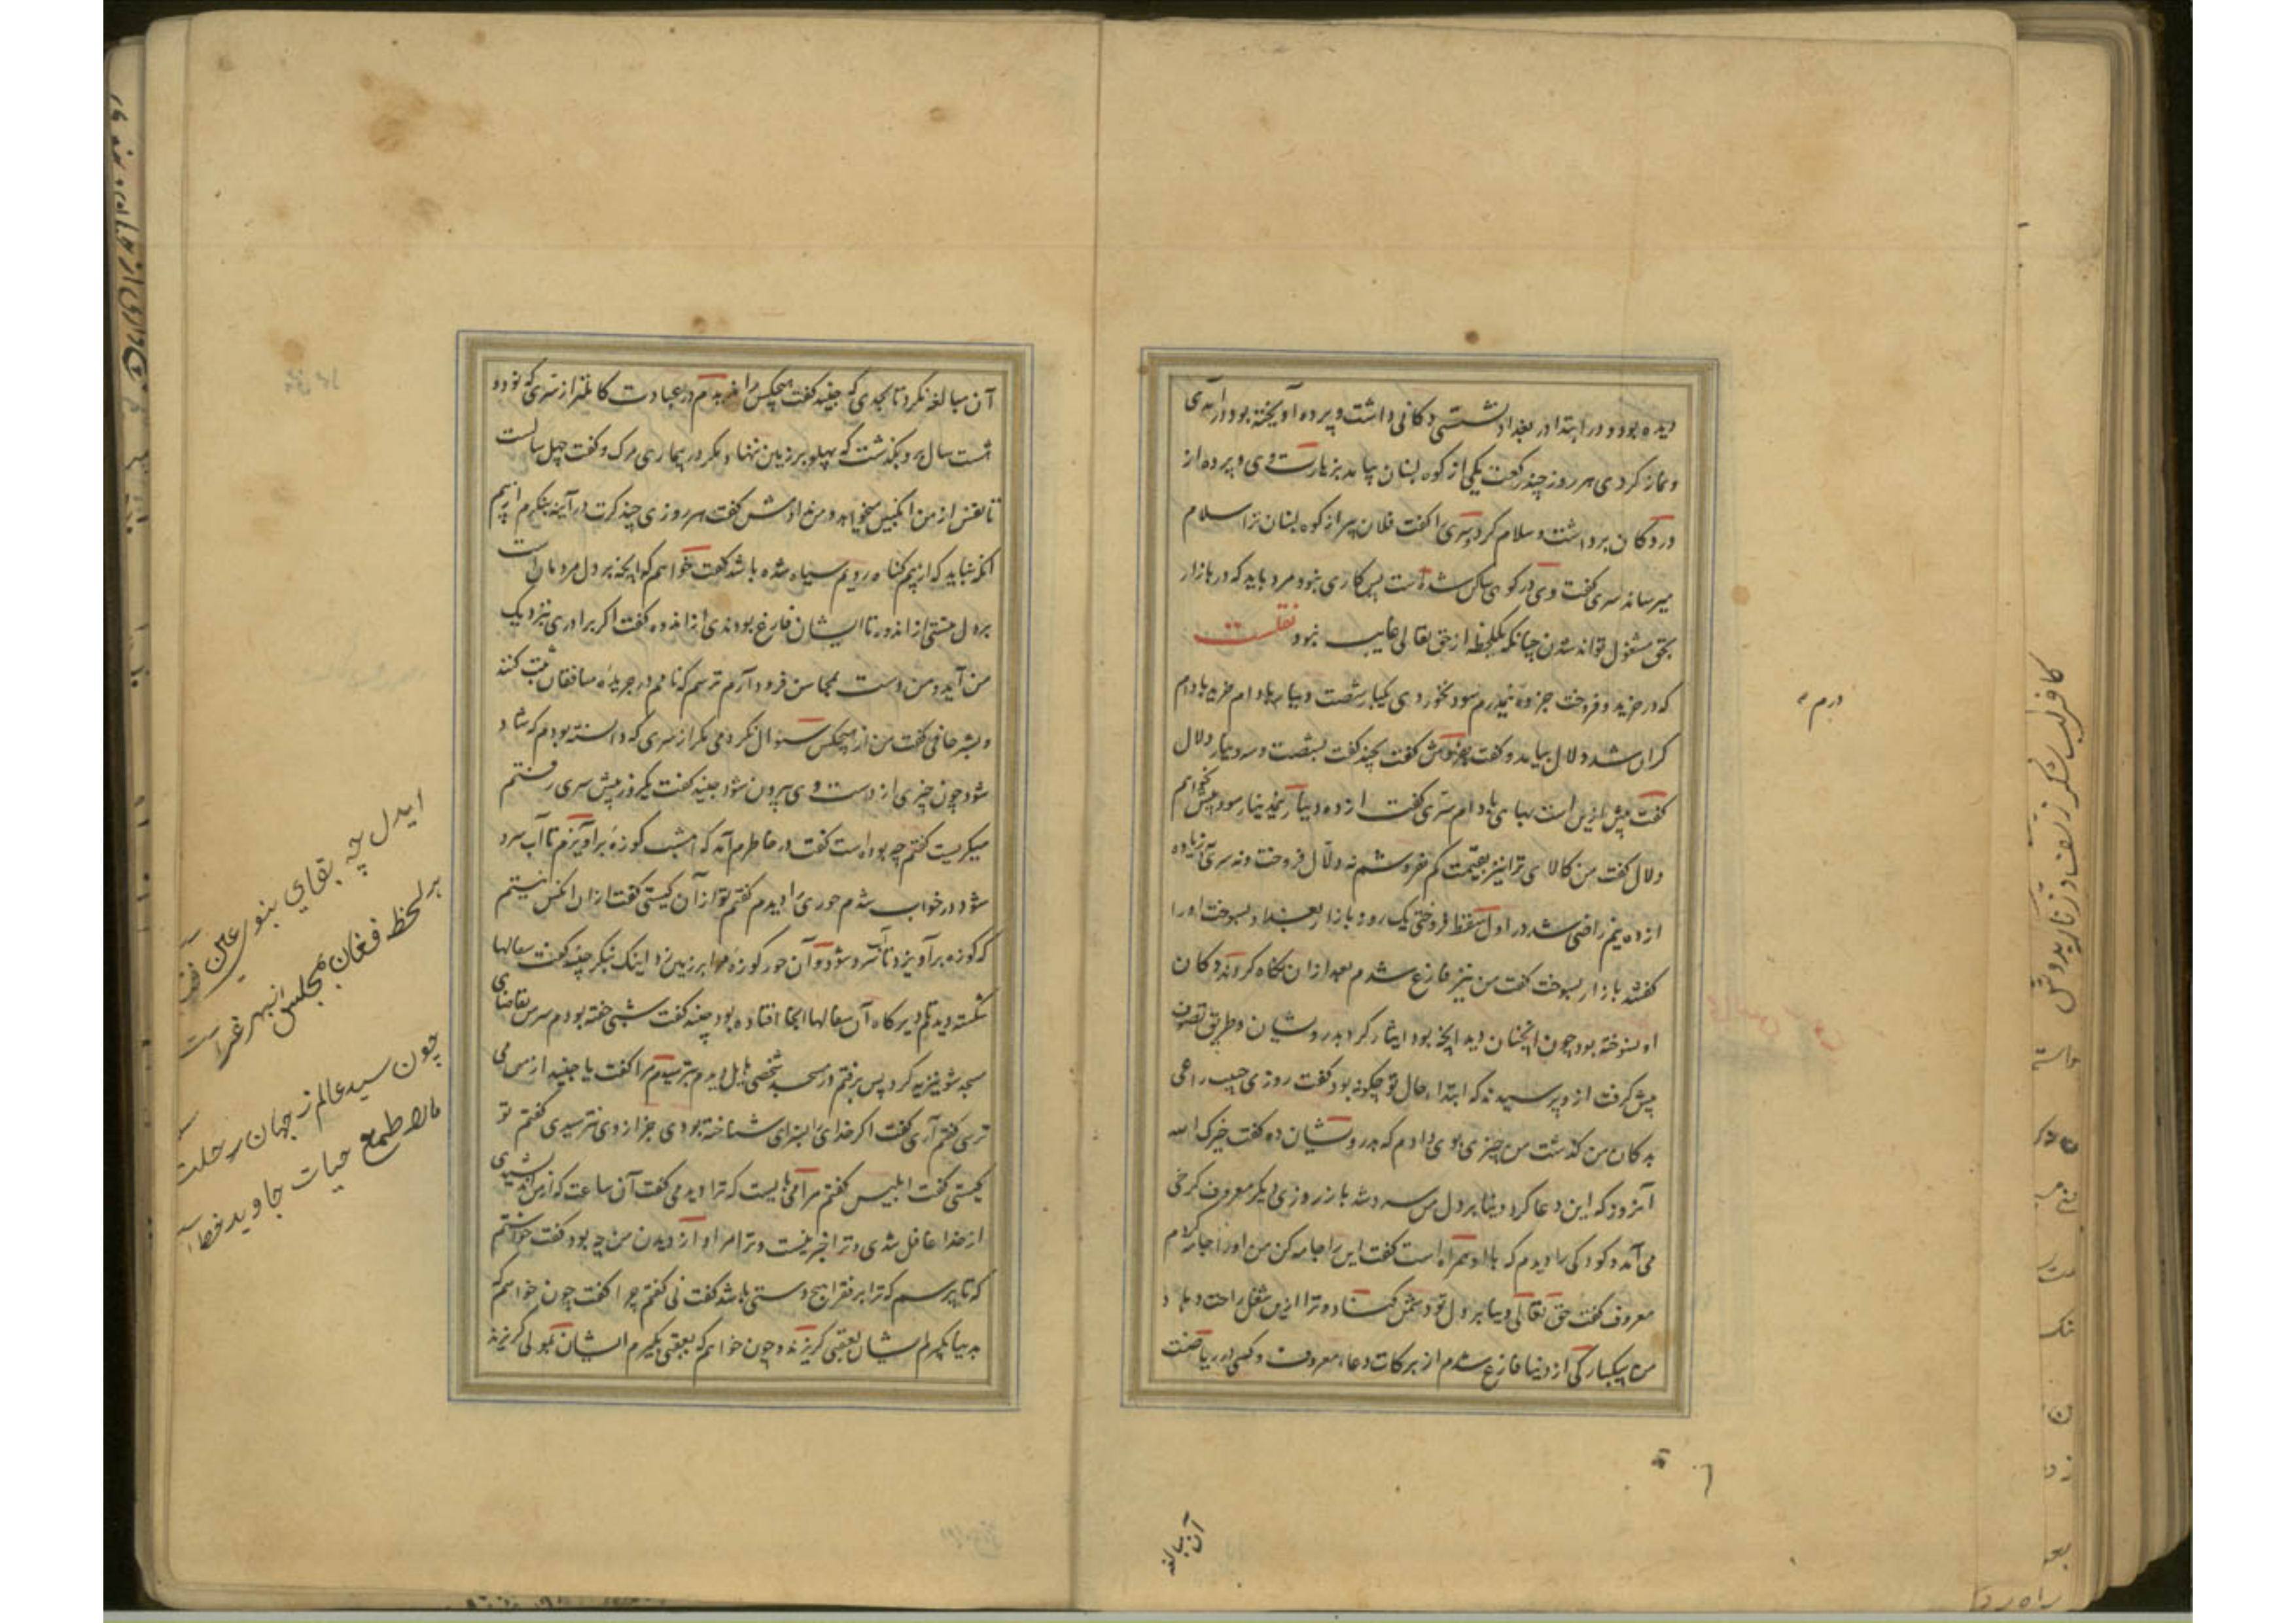 دیده بود و در ابتدا در بغداد نشستی دکانی داشت و پرده آویخته بود در آمدی
و نماز کردی هر روز چند رکعت یکی از کوه لبنان بیامد بزیارت وی و پرده از
در دکان برداشت و سلام کرد و سری را گفت فلان پیر از کوه لبنان ترا سلام
میرساند سری گفت وی در کوه ساکن شده است پس کاری نبود مرد باید که در بازار
بحق مشغول تواند شدن چنانکه یکلحظه از حق تعالی غایب نبود نقلست
که در خرید و فروخت جز ده نیم درم سود نخوردی یکبار بشصت دینار بادام خرید بادام
گران شد دلال بیامد و گفت بفروش گفت بچند گفت بشصت و سه دینار دلال
گفت بهای بادام سری گفت از ده دینار نیم دینار سود بیش نخواهم
دلال گفت من کالای ترا نیز بقیمت کم نفروشم نه دلال فروخت و نه سری زیاده
از ده نیم راضی شد در اول سقط فروختی یک روز بازار بغداد بسوخت او را
گفتند بازار بسوخت گفت من نیز فارغ شدم بعد از آن نگاه کردند دکان
او نسوخته بود چون آنچنان دید آنچه بود ایثار کرد بدرویشان و طریق تصوف
پیش گرفت ازو پرسیدند که ابتداء حال تو چگونه بود گفت روزی حبیب راعی
بدکان من گذشت من چیزی بوی دادم که بدرویشان ده گفت خیرک الله
آنروز که این دعا کرد دنیا بر دل من سرد شد باز روزی دیگر معروف کرخی
می آمد و کودکی را دیدم که با او همراه است گفت این را جامه کن من او را جامه کردم
معروف گفت حق تعالی دنیا بر دل تو دشمن گرداناد و ترا ازین شغل راحت دهاد
من بیکبارگی از دنیا فارغ شدم از برکات دعاء معروف و کسی در ریاضت
آن مبالغه
درم
آن مبالغه نکرد تا بحدی که جنید گفت هیچکس را ندیدم در عبادت کاملتر از سری که نود و
شست سال برو بگذشت که پهلو بر زمین ننهاد مگر در بیماری مرگ و گفت چهل سالست
تا نفس از من انگبین میخواهد و من ندادمش گفت هر روزی چند کرت در آینه بنگرم از بیم
آنکه نباید که از بیم گناه رویم سیاه شده باشد گفت خواهم که آنچه بر دل مردمانست
بر دل منستی از اندوه تا ایشان فارغ بودندی از اندوه گفت اگر برادری نزدیک
من آید و من دست بمحاسن فرود آرم ترسم که نامم در جریدهٔ منافقان ثبت کنند
و بشر حافی گفت من از هیچکس سؤال نکردمی مگر از سری که دانسته بودم که شاد
شود چون چیزی از دست وی بیرون شود جنید گفت یکروز پیش سری رفتم
میگریست گفتم چه بوده است گفت در خاطرم آمد که امشب کوزهٔ برآویزم تا آب سرد
شود در خواب شدم حوری را دیدم گفتم تو از آن کیستی گفت از آن آنکس نیستم
که کوزه برآویزد تا آب سرد شود و آن حور کوزه مرا بر زمین زد اینک بنگر جنید گفت سفالها
شکسته دیدم تا دیرگاه آن سفالها آنجا افتاده بود جنید گفت شبی خفته بودم سر من تقاضای
مسجد شونیزیه کرد پس برفتم در مسجد شخصی هایل دیدم بترسیدم مرا گفت یا جنید از من می
ترسی گفتم آری گفت اگر خدای را بسزای شناخته بودی جز از وی نترسیدی گفتم تو
کیستی گفت ابلیس گفتم مرا می بایست که ترا دیدمی گفت آن ساعت که از من اندیشیدی
از خدا غافل شدی و ترا خبر نیست و ترا مراد از دیدن من چه بود گفت خواستم
که تا پرسم که ترا بر فقرا هیچ دستی باشد گفت نی گفتم چرا گفت چون خواهم که
بدنیا بگیرم ایشان بعقبی گریزند و چون خواهم که بعقبی بگیرم ایشان بمولی گریزند
ایدل چه بقای بنوی عین
هر لحظه فغان مجلس انبهر عزاست
چون سید عالم ز جهان رحلت
مارا طمع حیات جاوید خطاست